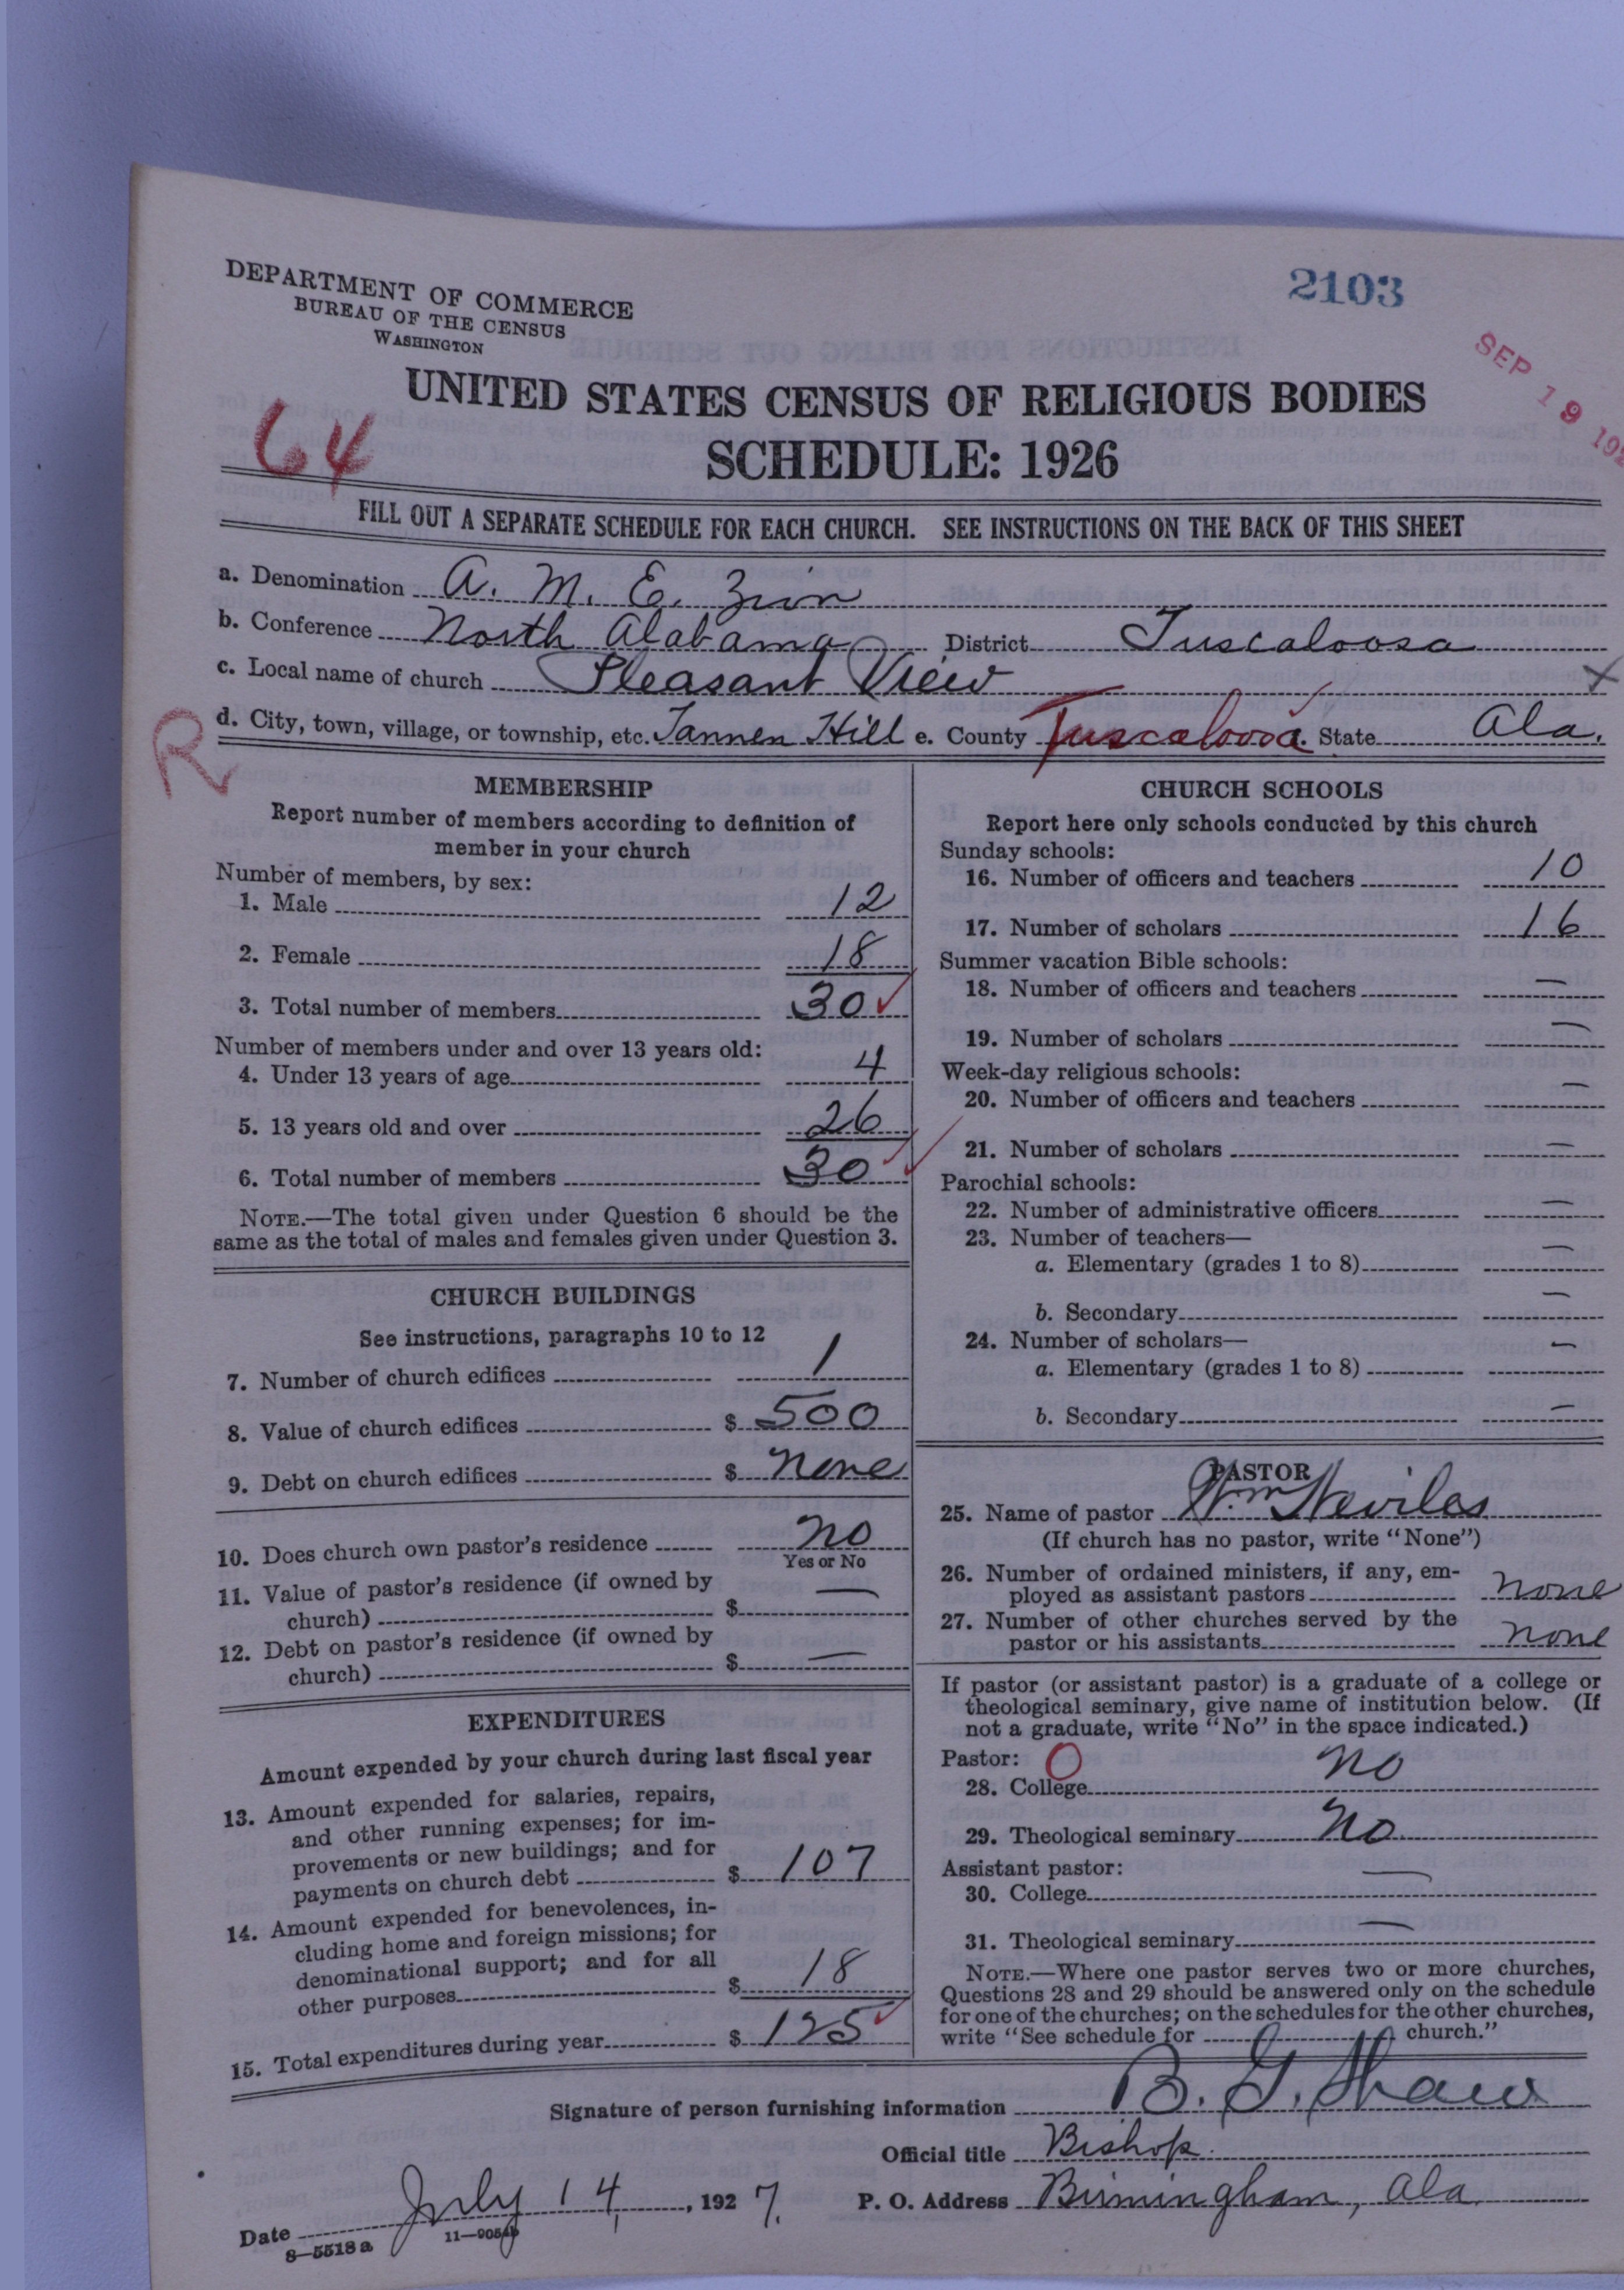 2103
DEPARTMENT OF COMMERCE
BUREAU OF THE CENSUS
WASHINGTON
SEP 19 192
UNITED STATES CENSUS OF RELIGIOUS BODIES
64
SCHEDULE: 1926
FILL OUT A SEPARATE SCHEDULE FOR EACH CHURCH. SEE INSTRUCTIONS ON THE BACK OF THIS SHEET
a. Denomination A. M. E. Zion
b. Conference North Alabama District Tuscaloosa
c. Local name of church Pleasant View X
R
d. City, town, village, or township, etc. Tannen Hill e. County Tuscaloosa. State Ala.
MEMBERSHIP
Report number of members according to definition of
member in your church
Number of members, by sex:
1. Male 12
2. Female 18
3. Total number of members 30 ✓
Number of members under and over 13 years old:
4. Under 13 years of age 4
5. 13 years old and over 26
6. Total number of members 30 ✓ ✓
NOTE.—The total given under Question 6 should be the
same as the total of males and females given under Question 3.
CHURCH BUILDINGS
See instructions, paragraphs 10 to 12
7. Number of church edifices 1
8. Value of church edifices $ 500
9. Debt on church edifices $ none
10. Does church own pastor's residence no
Yes or No
11. Value of pastor's residence (if owned by
church) $ —
12. Debt on pastor's residence (if owned by
church) $ —
EXPENDITURES
Amount expended by your church during last fiscal year
13. Amount expended for salaries, repairs,
and other running expenses; for im-
provements or new buildings; and for
payments on church debt $ 107
14. Amount expended for benevolences, in-
cluding home and foreign missions; for
denominational support; and for all
other purposes $ 18
15. Total expenditures during year $ 125 ✓
CHURCH SCHOOLS
Report here only schools conducted by this church
Sunday schools:
16. Number of officers and teachers 10
17. Number of scholars 16
Summer vacation Bible schools:
18. Number of officers and teachers —
19. Number of scholars —
Week-day religious schools:
20. Number of officers and teachers —
21. Number of scholars —
Parochial schools:
22. Number of administrative officers —
23. Number of teachers—
a. Elementary (grades 1 to 8) —
b. Secondary —
24. Number of scholars—
a. Elementary (grades 1 to 8) —
b. Secondary —
PASTOR
25. Name of pastor Wm Neviles
(If church has no pastor, write "None")
26. Number of ordained ministers, if any, em-
ployed as assistant pastors none
27. Number of other churches served by the
pastor or his assistants none
If pastor (or assistant pastor) is a graduate of a college or
theological seminary, give name of institution below. (If
not a graduate, write "No" in the space indicated.)
Pastor: O
28. College no
29. Theological seminary No
Assistant pastor:
30. College —
31. Theological seminary —
NOTE.—Where one pastor serves two or more churches,
Questions 28 and 29 should be answered only on the schedule
for one of the churches; on the schedules for the other churches,
write "See schedule for church."
Signature of person furnishing information B. G. Shaw
Official title Bishop.
Date July 14, 1927. P. O. Address Birmingham, Ala.
8—5518 a 11—9054b